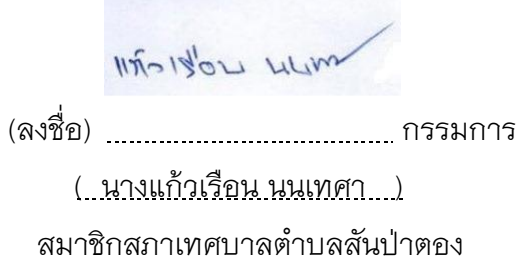 แก้วเรือน นนเทศา
(ลงชื่อ) ........................................ กรรมการ
( นางแก้วเรือน นนเทศา )
สมาชิกสภาเทศบาลตำบลสันป่าตอง